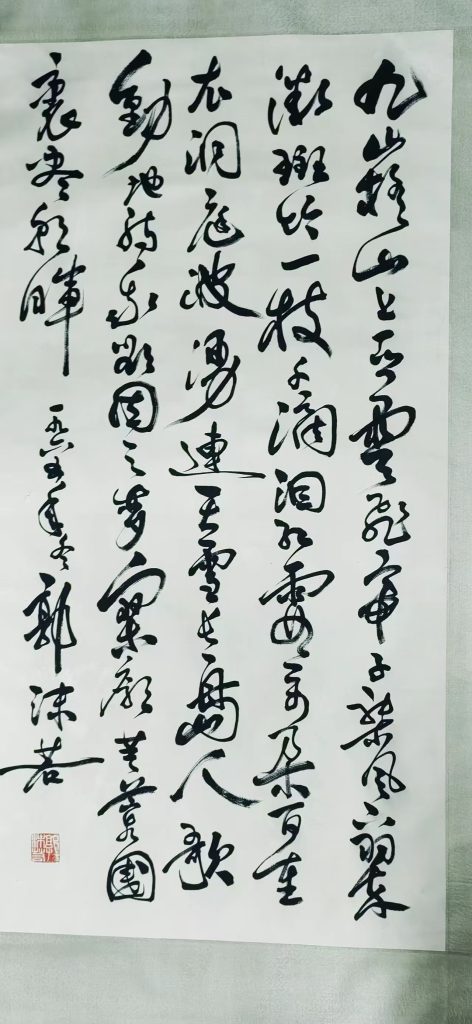 九嶷山上白雲飛帝子乘風下翠
微斑竹一枝千滴泪紅霞萬朵百重
衣洞庭波湧連天雪長島人歌
動地詩我欲因之夢寥廓芙蓉國
裏盡朝暉 一九六五年冬 郭沫若